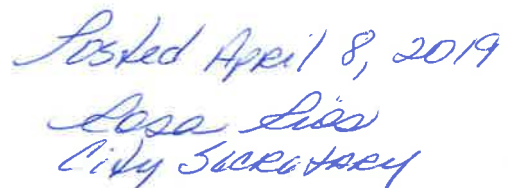 Posted April 8, 2019
Rosa Ríos
City Secretary